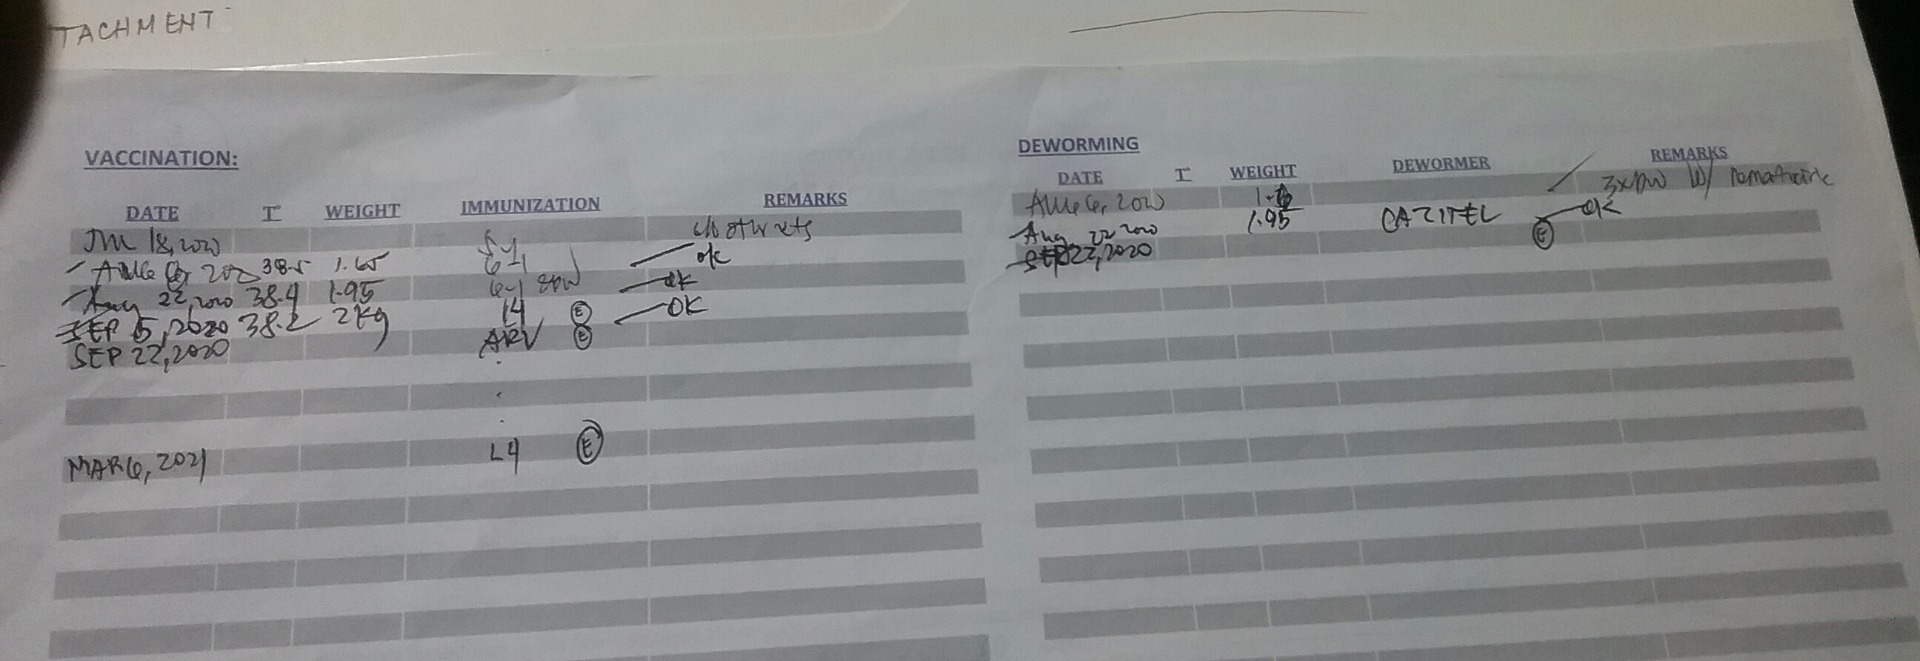 TACHMENT
VACCINATION:
DATE T WEIGHT IMMUNIZATION REMARKS
18, 2020 5-1
6, 2020 38.5 1.65 6-1 ok
Aug 22, 2020 38.4 1.95 6-1 ok
SEP 5, 2020 38.2 2kg L4 E OK
SEP 22, 2020 ARV E
MAR 6, 2021 L4 E
DEWORMING
DATE T WEIGHT DEWORMER REMARKS
6, 2020 3x w/
Aug 22 2020 1.95 CAZITEL E OK
SEP 22, 2020